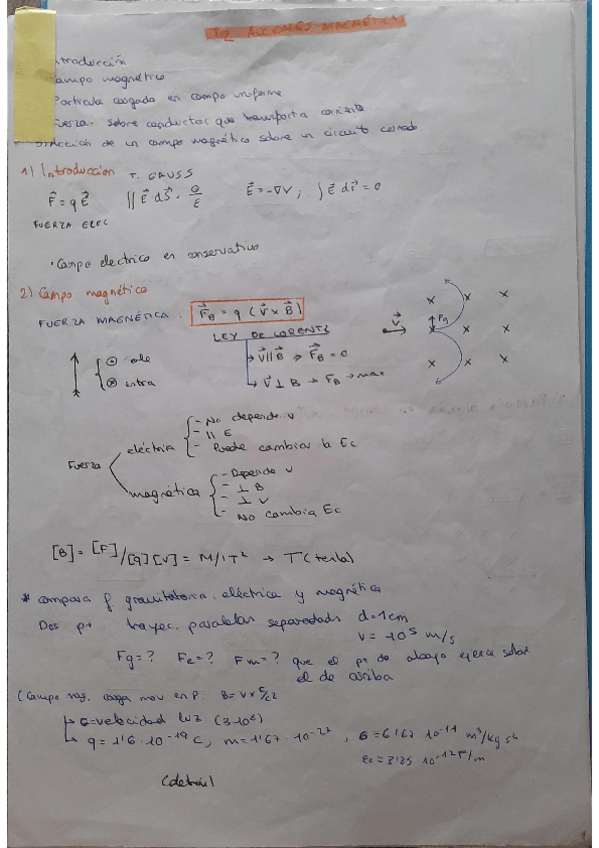 T2 ACCIONES MAGNÉTICAS
Introducción
Campo magnético
Partícula cargada en campo uniforme
Fuerza sobre conductores que transporta corriente
de un campo magnético sobre un circuito cerrado
1) Introducción T. GAUSS
F⃗ = q E⃗ ∬ E⃗ dS⃗ = Q/ε E⃗ = -∇V ; ∫ E⃗ dr⃗ = 0
FUERZA ELEC
· Campo electrico es conservativo
2) Campo magnético
FUERZA MAGNÉTICA : F⃗B = q (v⃗ x B⃗)
LEY DE LORENTZ
⊙ sale
⊗ entra
v⃗ ∥ B⃗ ⇒ F⃗B = 0
v⃗ ⊥ B → FB → max
V⃗ FB
x x x
x x x
x x x
Fuerza
eléctrica
- No depende v
- || E
- Puede cambiar la Ec
magnética
- Depende v
- ⊥ B
- ⊥ V
- No cambia Ec
[B] = [F]/[q][v] = M/IT² → T (tesla)
* compara f gravitatoria, eléctrica y magnética
Dos p+ trayec. paralelas separadas d = 1cm
v = 10⁵ m/s
Fg = ? Fe = ? Fm = ? que el p+ de abajo ejerce sobre
el de arriba
(Campo mag. carga mov en P: B = v x E/c²
c = velocidad luz
q = 1'6 · 10⁻¹⁹ C, m = 1'67 · 10⁻²⁷, G = 6'67 10⁻¹¹ m³/kg s²